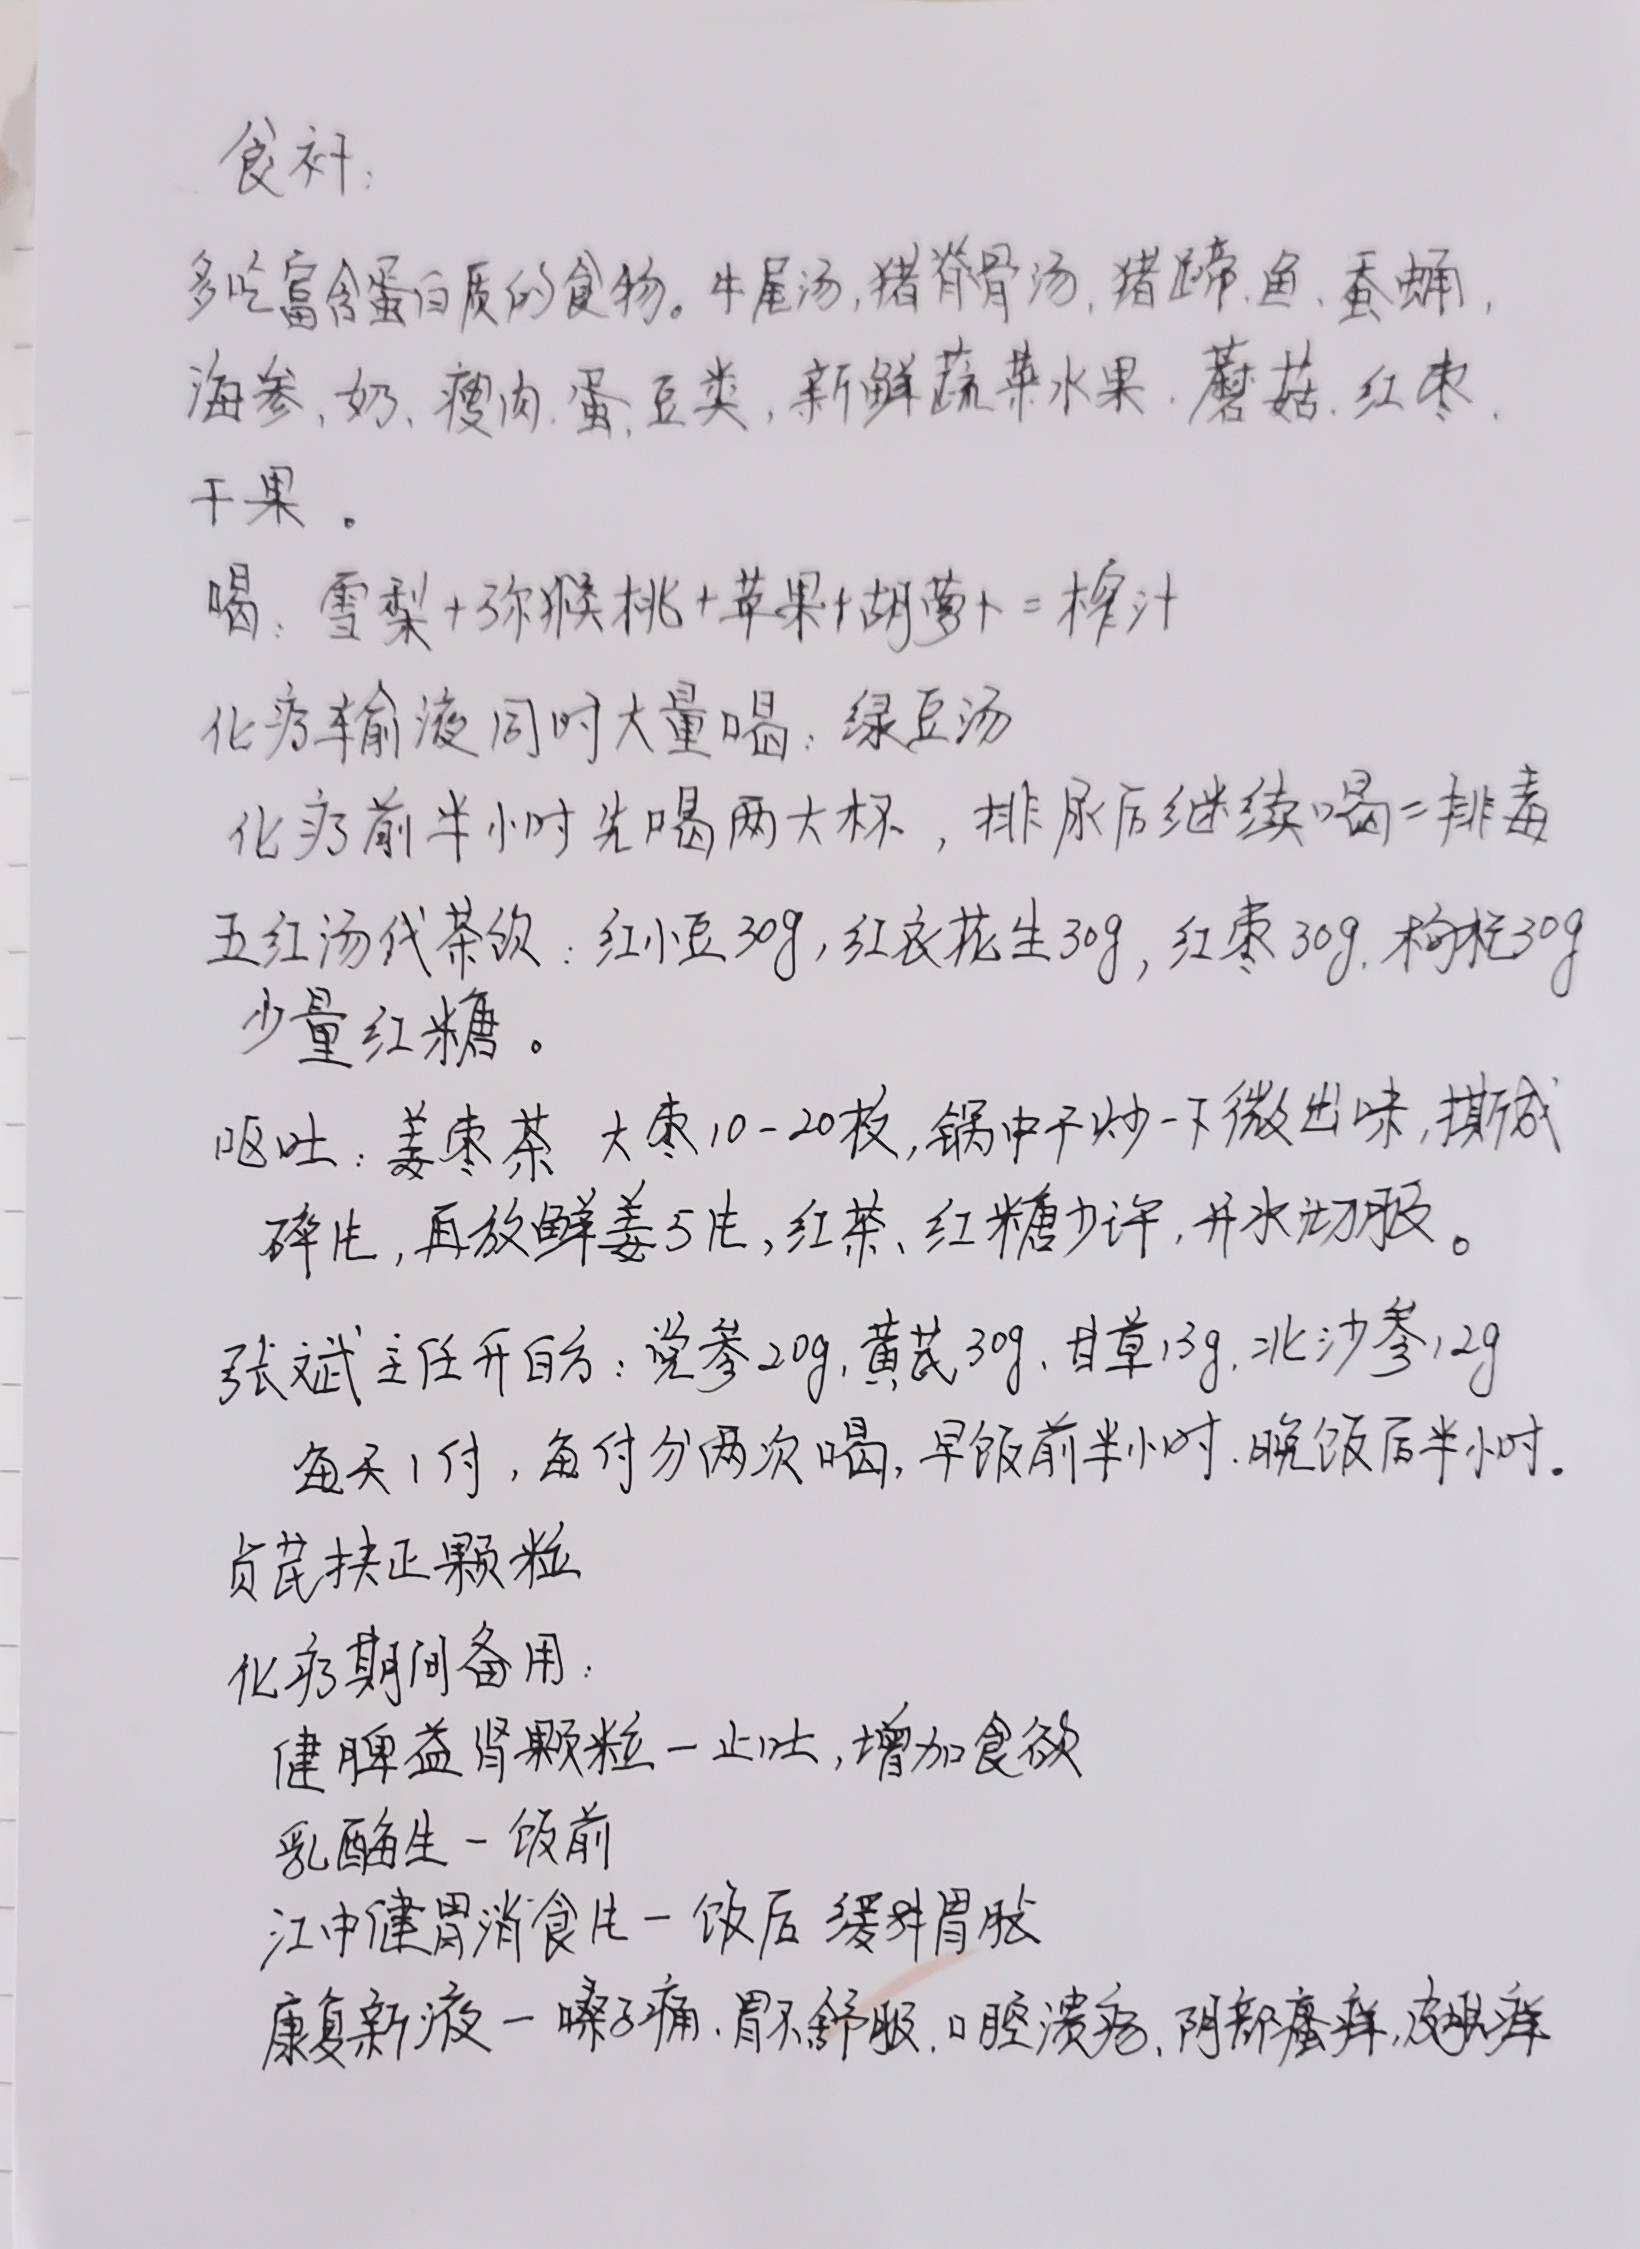 食补:
多吃富含蛋白质的食物。牛尾汤,猪脊骨汤,猪蹄、鱼、蚕蛹,
海参、奶、瘦肉、蛋、豆类,新鲜蔬菜水果、蘑菇、红枣、
干果。
喝:雪梨+弥猴桃+苹果+胡萝卜=榨汁
化疗输液同时大量喝:绿豆汤
化疗前半小时先喝两大杯,排尿后继续喝=排毒
五红汤代茶饮:红小豆30g,红衣花生30g,红枣30g、枸杞30g
少量红糖。
呕吐:姜枣茶 大枣10-20枚,锅中干炒一下微出味,撕成
碎片,再放鲜姜5片,红茶、红糖少许,开水沏服。
张斌主任开白方:党参20g、黄芪30g、甘草13g、北沙参12g
每天1付,每付分两次喝,早饭前半小时、晚饭后半小时。
贞芪扶正颗粒
化疗期间备用:
健脾益肾颗粒-止吐,增加食欲
乳酶生-饭前
江中健胃消食片-饭后 缓解胃胀
康复新液-嗓子痛、胃不舒服、口腔溃疡、阴部瘙痒,皮肤痒